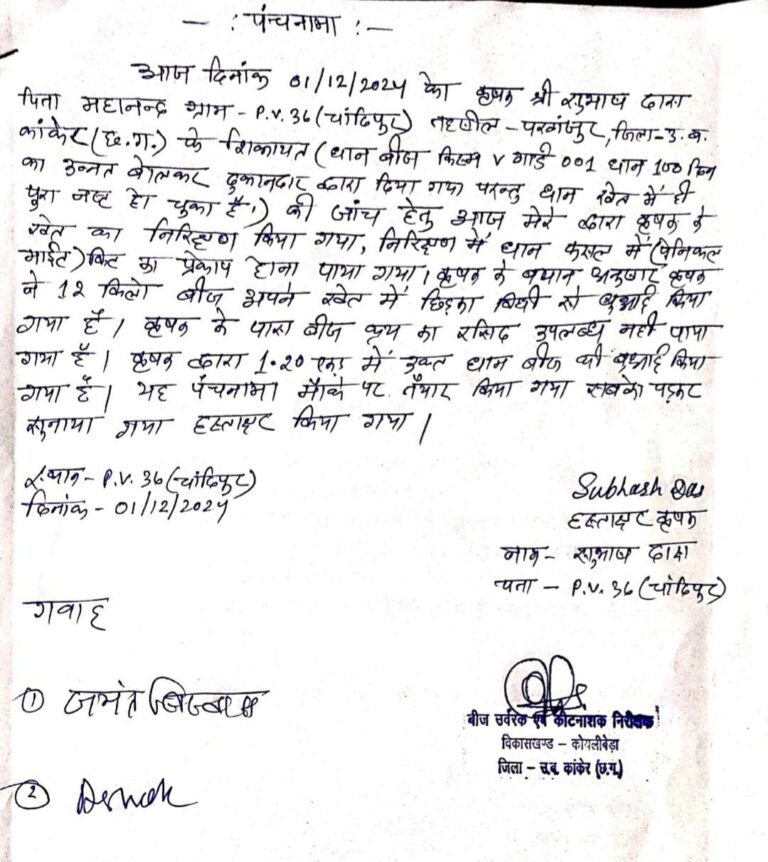 —: पंचनामा :—
आज दिनांक 01/12/2024 को कृषक श्री सुभाष दास
पिता महानन्द ग्राम - P.V. 36 (चांदिपुर) तहसील - पखांजुर, जिला - उ.ब.
कांकेर (छ.ग.) के शिकायत (धान बीज किस्म V गार्ड 001 धान 100 दिन
का उन्नत बोलकर दुकानदार द्वारा दिया गया परन्तु धान खेत में ही
पुरा नष्ट हो चुका है।) की जांच हेतु आज मेरे द्वारा कृषक के
खेत का निरिक्षण किया गया, निरिक्षण में धान फसल में (पेनिकल
माईट) किट का प्रकोप होना पाया गया। कृषक के बयान अनुसार कृषक
ने 12 किलो बीज अपने खेत में छिड़का विधी से बुआई किया
गया है। कृषक के पास बीज क्रय का रसिद उपलब्ध नही पाया
गया है। कृषक द्वारा 1.20 एकड़ में उक्त धान बीज की बुआई किया
गया है। यह पंचनामा मौके पर तैयार किया गया सबको पढ़कर
सुनाया गया हस्ताक्षर किया गया।
स्थान - P.V. 36 (चांदिपुर)
दिनांक - 01/12/2024
Subhash Das
हस्ताक्षर कृषक
नाम - सुभाष दास
पता - P.V. 36 (चांदिपुर)
गवाह
① जयंत
②
बीज उर्वरक एवं कीटनाशक निरीक्षक
विकासखण्ड – कोयलीबेड़ा
जिला – उ.ब. कांकेर (छ.ग.)